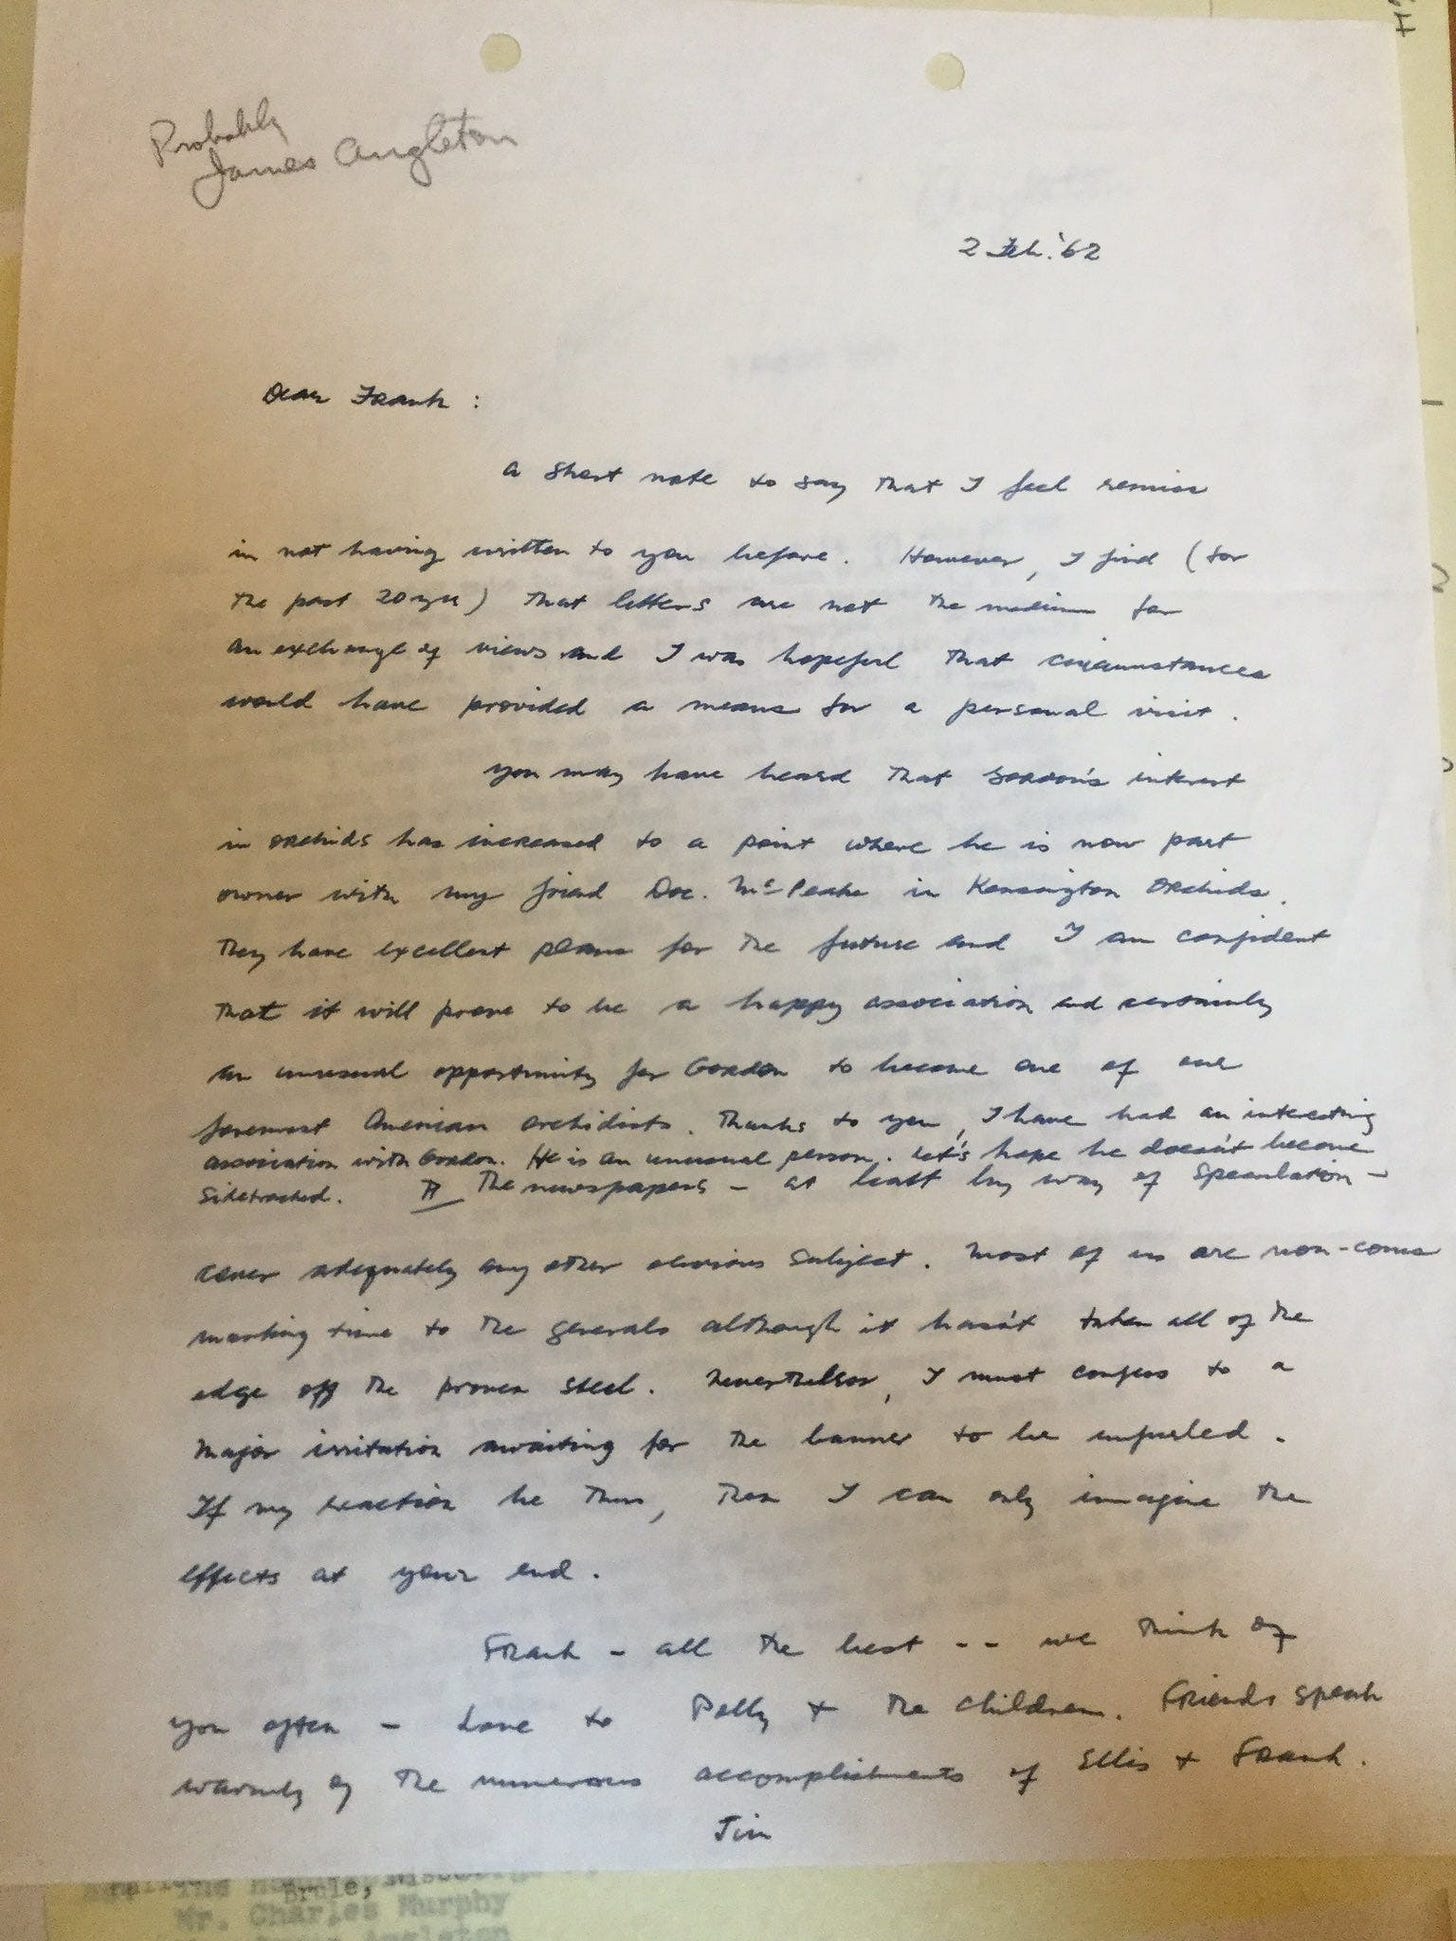 Probably
James Angleton
2 Feb. '62
Dear Frank :
a short note to say that I feel remiss
in not having written to you before. However, I find (for
the past 20 yrs) that letters are not the medium for
an exchange of views and I was hopeful that circumstances
would have provided a means for a personal visit.
you may have heard that Gordon's interest
in orchids has increased to a point where he is now part
owner with my friend Doc. McPeake in Kensington Orchids.
They have excellent plans for the future and I am confident
that it will prove to be a happy association and certainly
an unusual opportunity for Gordon to become one of our
foremost American orchidists. Thanks to you, I have had an interesting
association with Gordon. He is an unusual person. Let's hope he doesn't become
sidetracked. The newspapers - at least by way of speculation -
cover adequately any other obvious subject. Most of us are non-coms
marking time to the generals although it hasn't taken all of the
edge off the proven steel. Nevertheless, I must confess to a
major irritation awaiting for the banner to be unfurled.
If my reaction be thus, then I can only imagine the
effects at your end.
Frank - all the best -- we think of
you often - Love to Polly + the children. Friends speak
warmly of the numerous accomplishments of Ellis + Frank.
Jim
Brule,
Mr. Charles Murphy
Angleton